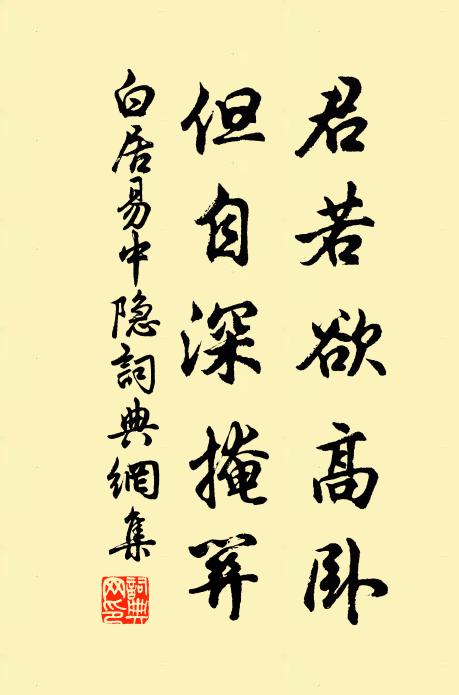 君若欲高卧
但自深掩關
白居易中隐詞典網集
詞典网印